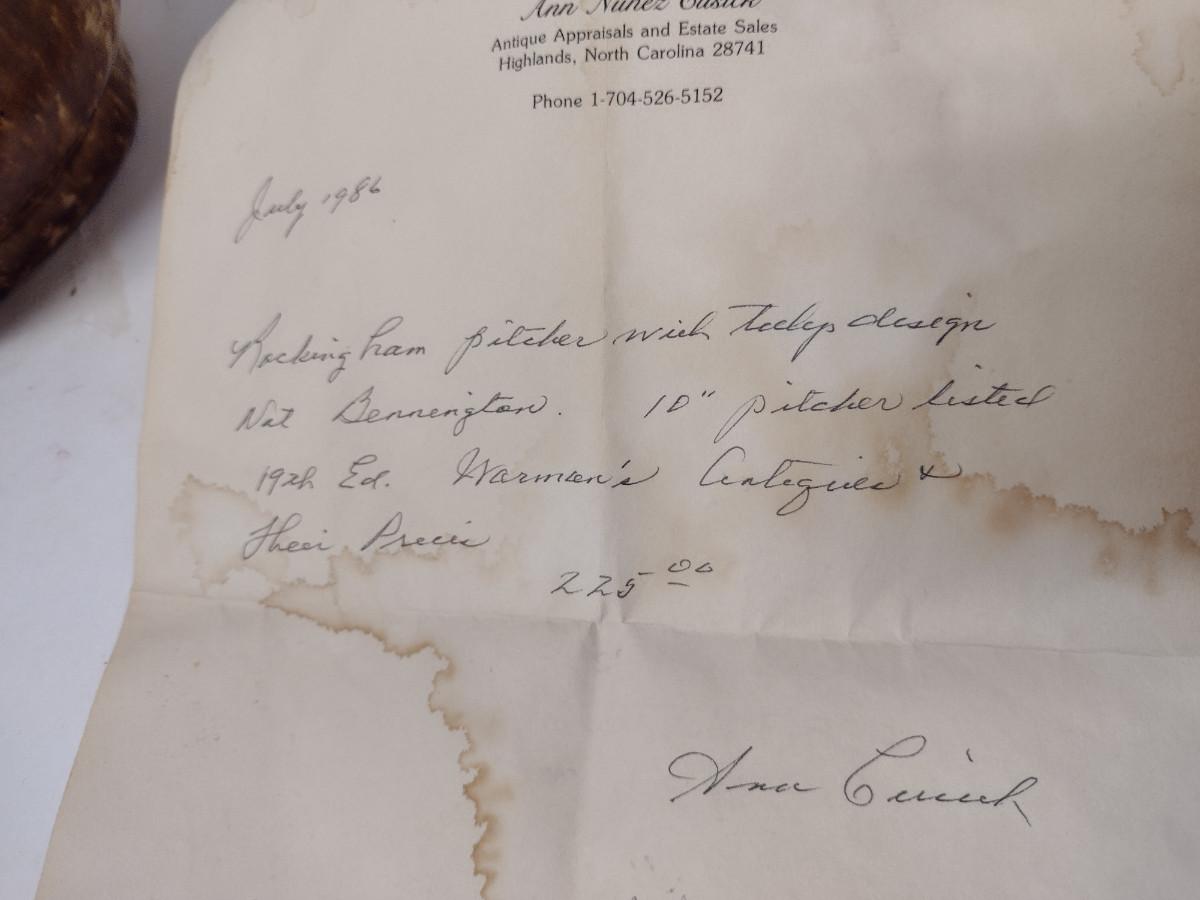 Ann Nunez Cusick
Antique Appraisals and Estate Sales
Highlands, North Carolina 28741
Phone 1-704-526-5152
July 1986
Rockingham pitcher with tulip design
Not Bennington. 10" pitcher listed
19th Ed. Warman's Antiques &
Their Prices
225 00
Ann Cusick